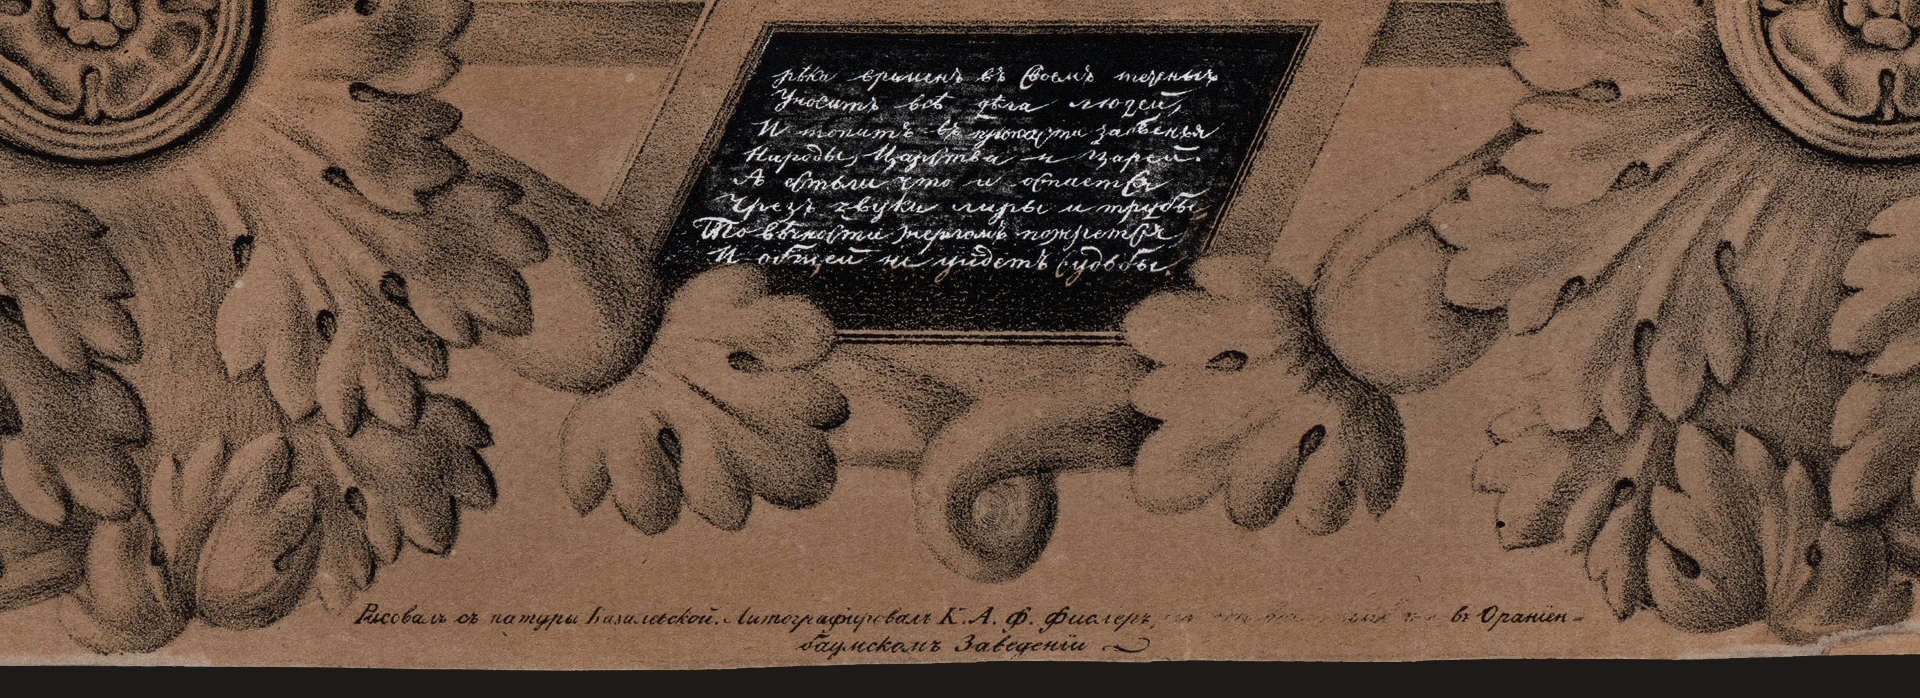 рѣка временъ въ своемъ теченьи
Уноситъ всѣ дѣла людей,
И топитъ въ пропасти забвенья
Народы, Царства и Царей.
А естьли что и остается
Чрезъ звуки лиры и трубы,
То вѣчности жерломъ пожрется
И общей не уйдетъ судьбы.
Рисовалъ съ натуры Базилевской. Литографировалъ К. А. Ф. Фислеръ, въ Ораніен-
баумскомъ Заведеніи